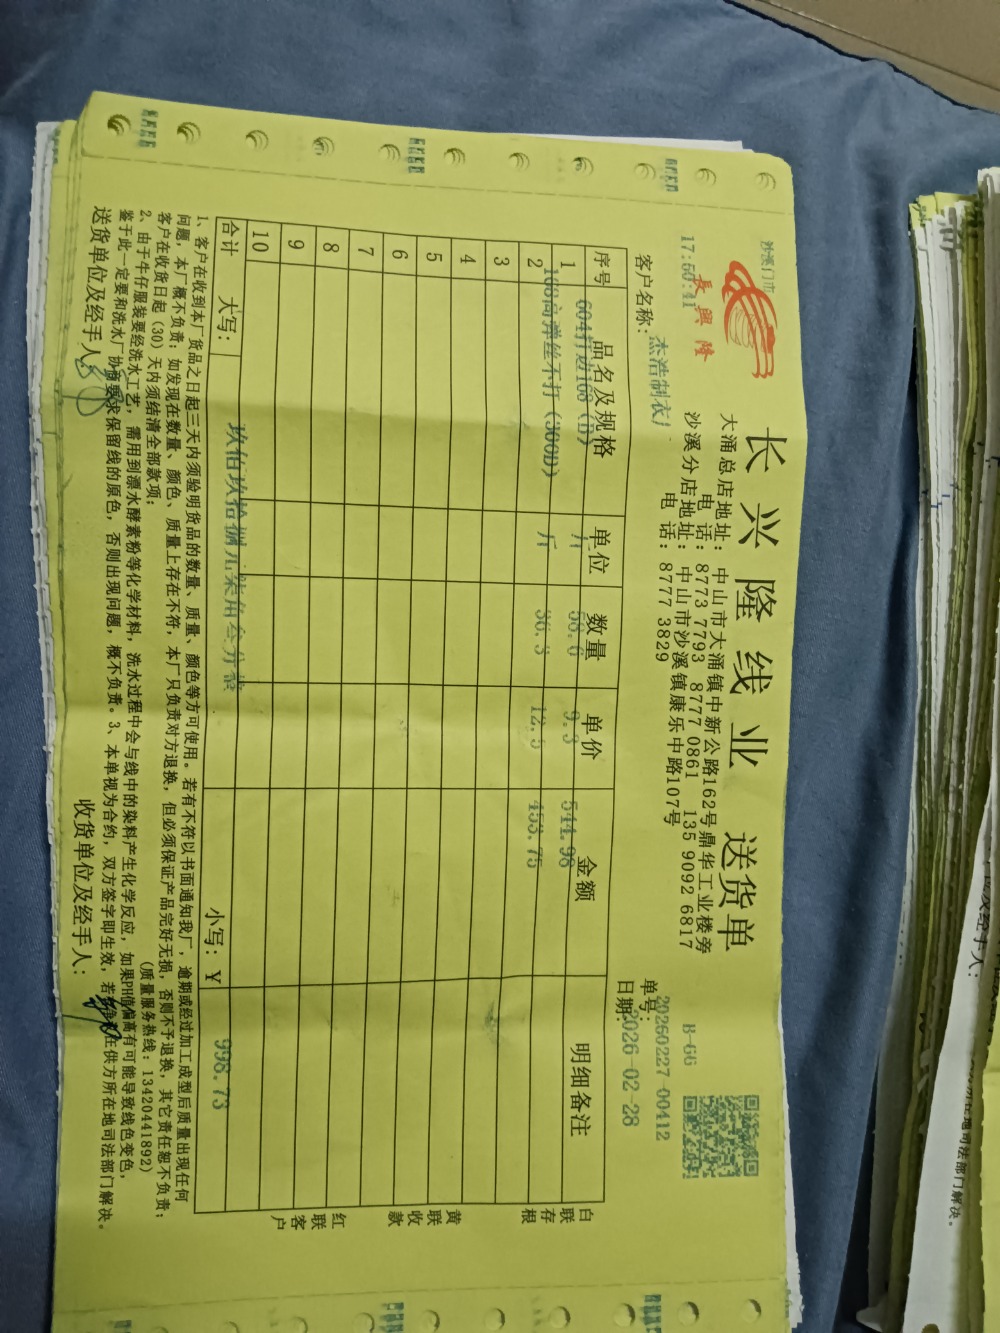 沙溪门市
長興隆
17:50:41
长兴隆线业 送货单
大涌总店地址：中山市大涌镇中新公路162号鼎华工业楼旁
电话：8773 7793 8777 0861 135 9092 6817
沙溪分店地址：中山市沙溪镇康乐中路107号
电话：8777 3829
B-GG
单号：20260227-00412
日期：2026-02-28
客户名称：杰浩制衣厂
序号 品名及规格 单位 数量 单价 金额 明细备注
1 604打边168(D) 斤 58.6 9.3 544.98
2 168高弹丝不打(300D) 斤 36.3 12.5 453.75
3
4
5
6
7
8
9
10
合计 大写： 玖佰玖拾捌元柒角叁分整 小写：¥ 998.73
白联存根
黄联收款
红联客户
1、客户在收到本厂货品之日起三天内须验明货品的数量、质量、颜色等方可使用。若有不符以书面通知我厂，逾期或经过加工成型后质量出现任何
问题，本厂概不负责；如发现在数量、颜色、质量上存在不符，本厂只负责对方退换，但必须保证产品完好无损，否则不予退换，其它责任恕不负责；
客户在收货日起(30)天内须结清全部款项； (质量服务热线：13420441892)
2、由于牛仔服装要经洗水工艺，需用到漂水酵素粉等化学材料，洗水过程中会与线中的染料产生化学反应，如果PH值偏高有可能导致线色变色，
鉴于此一定要和洗水厂协商要求保留线的原色，否则出现问题，概不负责。3、本单视为合约，双方签字即生效，若有争 在供方所在地司法部门解决。
送货单位及经手人： 收货单位及经手人：
及经手人：
所在地司法部门解决。